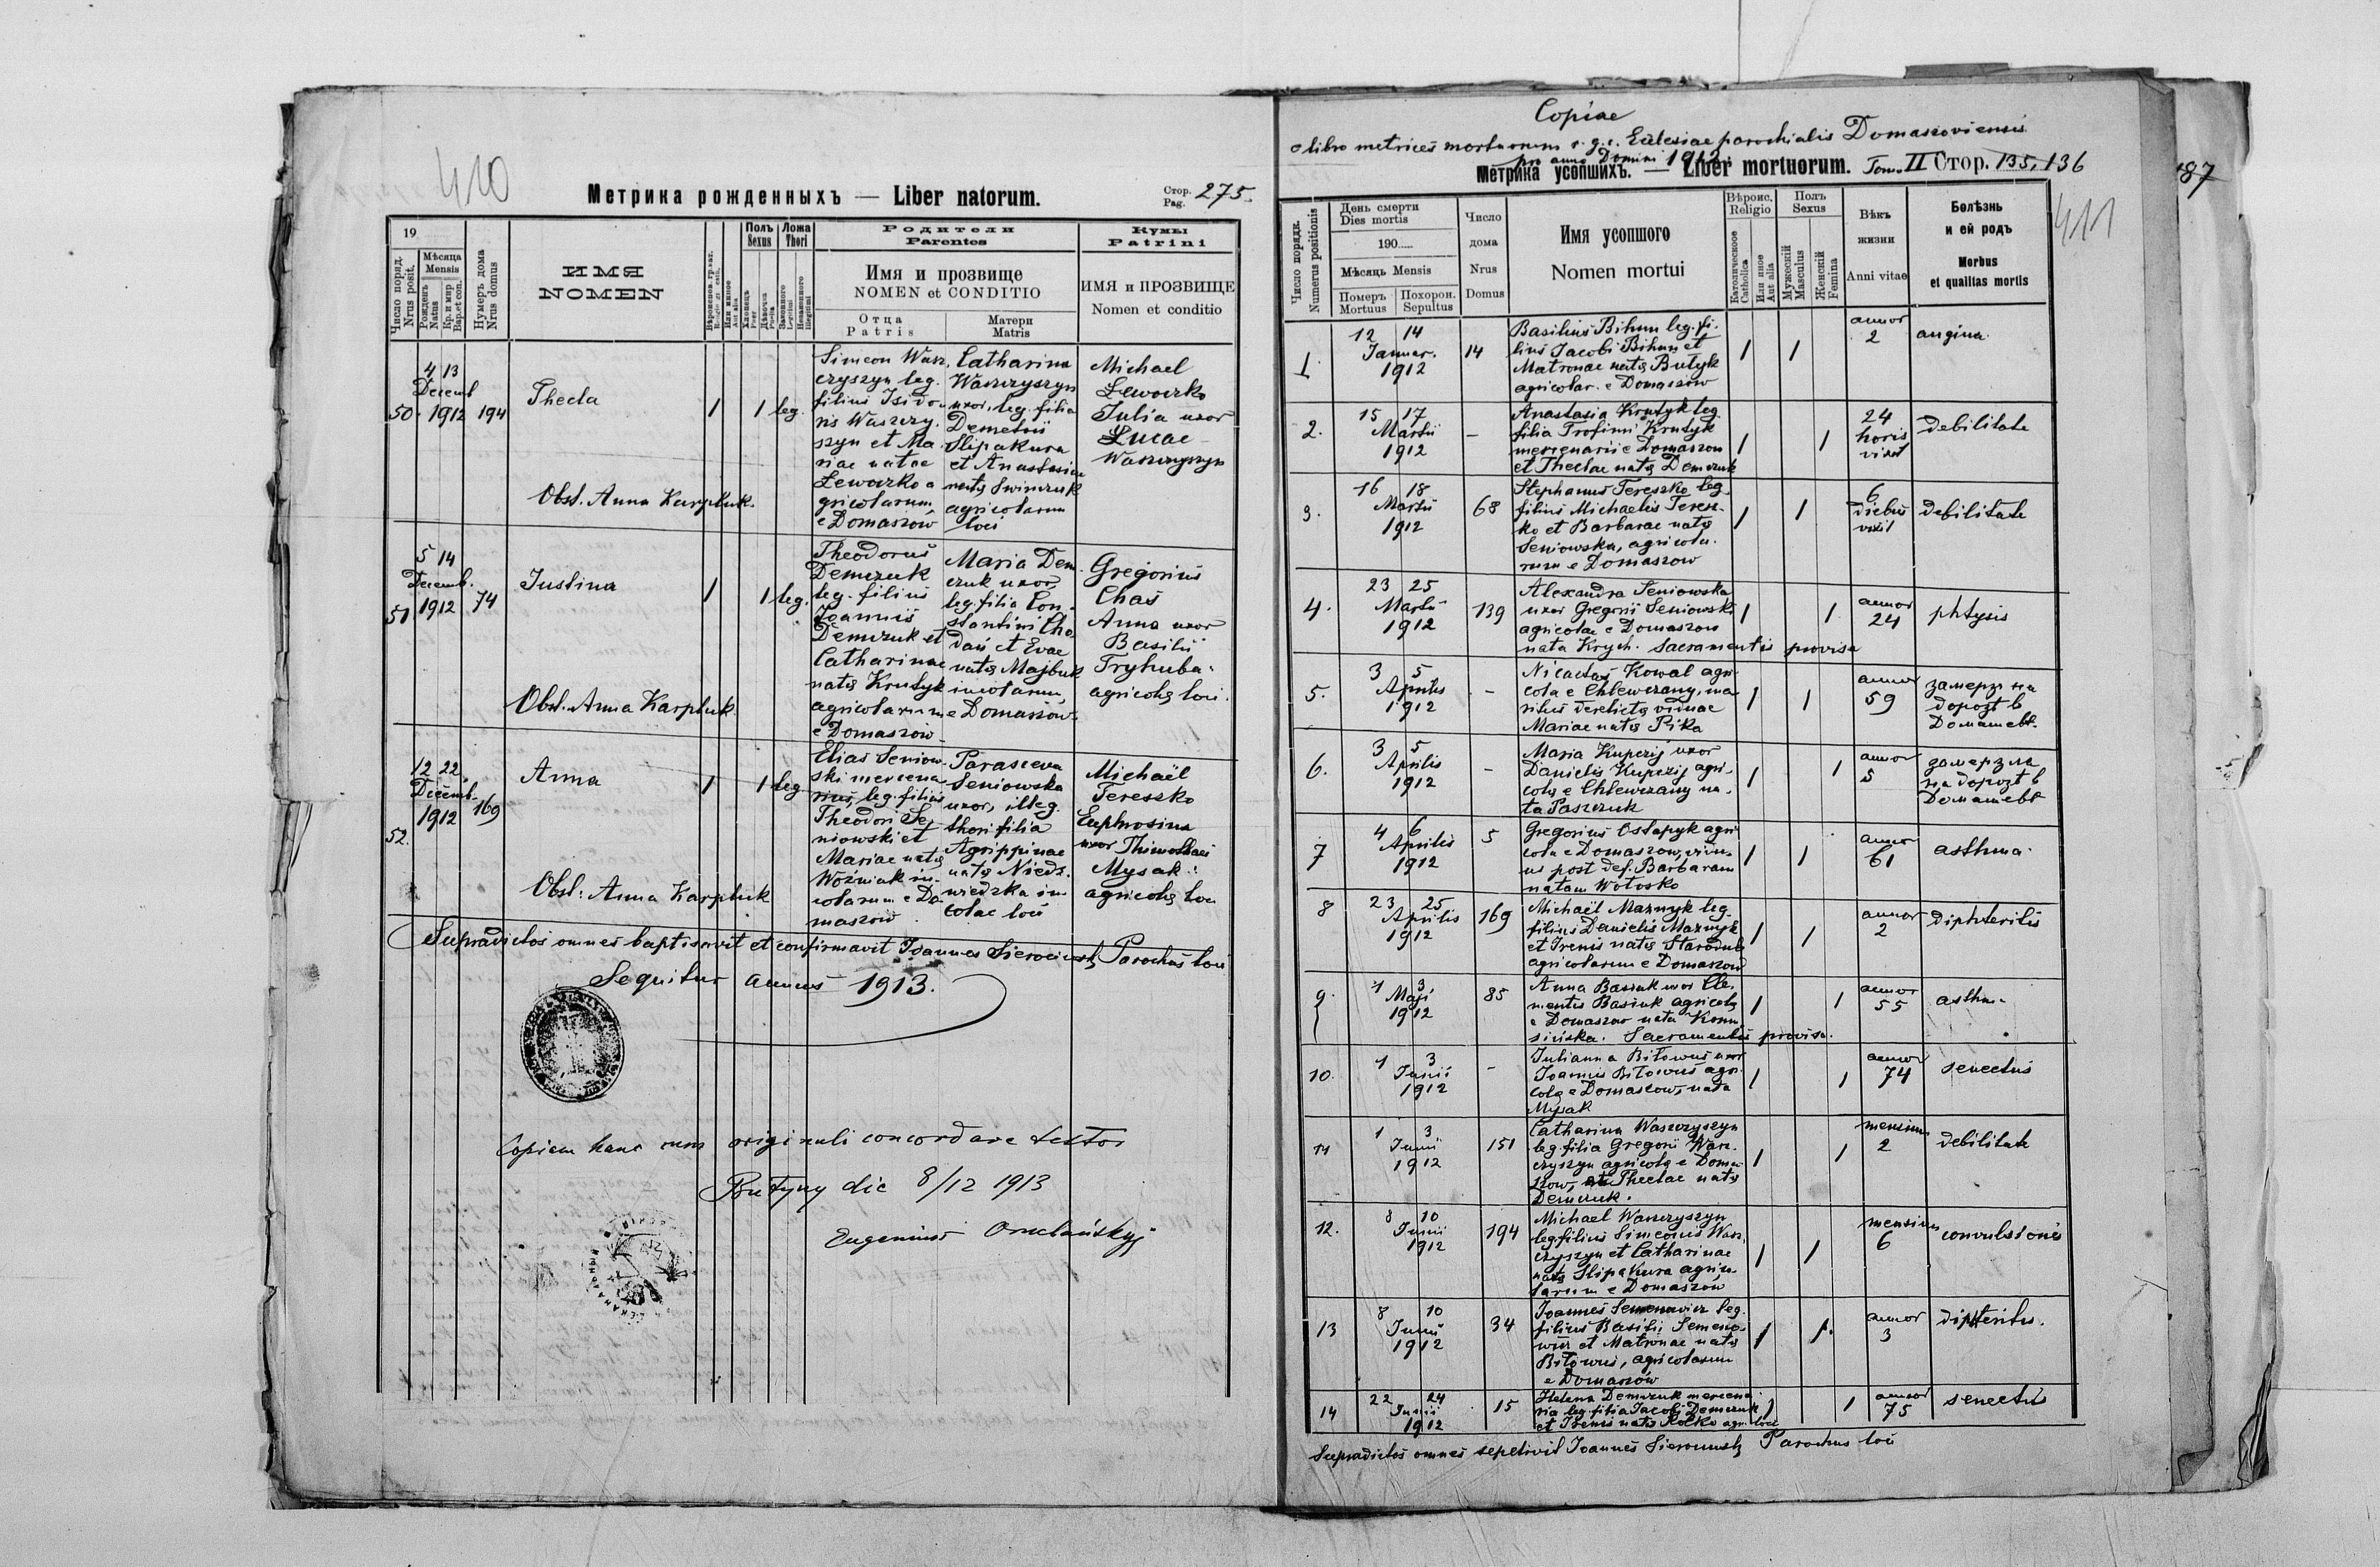 410
Метрика рожденныхъ — Liber natorum.
Стор. Pag. 275.
19
Число поряд. Nrus posit.
Мѣсяца Mensis
Рожденъ Natus
Кр. и мир. Bap. et con.
Нумеръ дома Nrus domus
ИМЯ
NOMEN
Или иное
Aut alia
Полъ Sexus
Хлопецъ Puer
Дѣвочка Puella
Ложа Thori
Законного Legitimi
Незаконного Illegitimi
Родители
Parentes
Имя и прозвище
NOMEN et CONDITIO
Отца
Patris
Матери
Matris
Кумы
Patrini
ИМЯ и ПРОЗВИЩЕ
Nomen et conditio
50. 4 13 Decemb 1912 194
Thecla
1 1 leg.
Simeon Wasz-
czyszyn leg.
filius Isido-
ris Waszczy-
szyn et Ma-
riae natae
Lewoczko a
gricolarum
e Domaszow
Catharina
Waszczyszyn
uxor, leg. filia
Demetrii
Slipakura
et Anastasiae
natę Swinczuk
agricolarum
loci
Michael
Lewoczko
Julia uxor
Lucae
Waszczyszyn
Obst. Anna Karpluk.
51 5 14 Decemb. 1912 74
Justina
1 1 leg.
Theodorus
Demczuk
leg. filius
Joannis
Demczuk et
Catharinae
natę Krutyk
agricolarum
e Domaszow
Maria Dem
czuk uxor
leg. filia Con-
stantini Cho
daś et Evae
natę Majbuk
incolarum
e Domaszów
Gregorius
Chaś
Anna uxor
Basilii
Tryhuba
agricolę loci.
Obst. Anna Karpluk.
52. 12 22 Decemb. 1912 169
Anna
1 1 leg
Elias Seniow-
ski mercena-
rius, leg. filius
Theodori Se-
niowski et
Mariae natę
Woźniak in-
colarum e Do
maszow
Parasceva
Seniowska
uxor, illeg.
thori filia
Agrippinae
natę Niedz-
wiedzka in
colae loci
Michaël
Tereszko
Euphrosina
uxor Thimothaei
Mysak
agricolę loci
Obst: Anna Karpluk
Supradictos omnes baptisavit et confirmavit Joannes Sierociński Parochus loci
Sequitur annus 1913.
Copiam hanc cum originali concordare testor
Butyny die 8/12 1913
Eugenius
Copiae
e libro metrices mortuorum r. g. c. Ecclesiae parochialis Domaszoviensis
pro anno Domini 1912.
Метрика усопшихъ. — Liber mortuorum. Tom. II Стор. 135, 136
87
411
Число порядк.
Numerus positionis
День смерти
Dies mortis
190.....
Мѣсяцъ Mensis
Померъ Mortuus
Похорон. Sepultus
Число дома
Nrus Domus
Имя усопшого
Nomen mortui
Вѣроис. Religio
Католическое Catholica
Или иное Aut alia
Полъ Sexus
Мужескій Masculus
Женскій Femina
Вѣкъ жизни
Anni vitae
Болѣзнь
и ей родъ
Morbus
et qualitas mortis
1. 12 14 Januar. 1912 14
Basilius Bihun leg. fi-
lius Jacobi Bihun et
Matronae natę Butyk
agricolar. e Domaszów
1 1 annor 2 angina
2. 15 17 Martii 1912 –
Anastasia Krutyk leg.
filia Trofimi Krutyk
mercenarii e Domaszow
et Theclae natę Demczuk
1 1 24 horis vixit debilitate
3. 16 18 Martii 1912 68
Stephanus Tereszko leg.
filius MichaelisTeresz-
ko et Barbarae natę
Seniowska, agricola-
rum e Domaszow
1 1 6 diebus vixit debilitate
4. 23 25 Martii 1912 139
Alexandra Seniowska
uxor Gregorii Seniowski
agricolae e Domaszow
nata Krych. Sacramentis provisa
1 1 annor 24 phtysis
5. 3 5 Aprilis 1912 –
Nicaetas Kowal agri-
cola e Chlewczany, ma-
ritus derelictę viduae
Mariae natę Pika
1 1 annor 59
замерз на
дорозѣ в
Домашевѣ
6. 3 5 Aprilis 1912 –
Maria Kuperij uxor
Danielis Kuperij agri-
colę e Chlewczany na-
ta Paszczuk
1 1 annor 5
замерзла
на дорозѣ в
Домашевѣ
7 4 6 Aprilis 1912 5
Gregorius Ostapyk agri
cola e Domaszow, vidu-
us post def. Barbaram
natam Wołosko
1 1 annor 61 asthma
8 23 25 Aprilis 1912 169
Michaël Maznyk leg.
filius Danielis Maznyk
et Irenis natę Starodub
agricolarum e Domaszow
1 1 annor 2 diphteritis
9. 1 3 Maji 1912 85
Anna Basiuk uxor Cle-
mentis Basiuk agricolę
e Domaszow nata
Sacramentis provisa.
1 1 annor 55 asthma
10. 1 3 Junii 1912 –
Julianna Biłowus uxor
Joannis Biłowus agri-
colę e Domaszow, nata
Mysak
1 1 annor 74 senectus
11 1 3 Junii 1912 151
Catharina Waszczyszyn
leg. filia Gregorii Wasz-
czyszyn agricolę e Doma-
szow, et Theclae natę
Demczuk.
1 1 mensium 2 debilitate
12. 8 10 Junii 1912 194
Michael Waszczyszyn
leg. filius Simeonis Wasz-
czyszyn et Catharinae
natę Slipakura agrico-
larum e Domaszów
1 1 mensium 6 convulsiones
13 8 10 Junii 1912 34
Joannes Semenowicz leg.
filius Basilii Semeno-
wicz et Matronae natę
Biłowus, agricolarum
e Domaszów
1 1. annor 3 diphteritis.
14 22 24 Junii 1912 15
Helena Demczuk mercena
ria leg. filia Jacobi Demczuk
et Irenis natę Rolko agri. loci
1 1 annor 75 senectus
Supradictos omnes sepelivit Joannes Sierociński Parochus loci